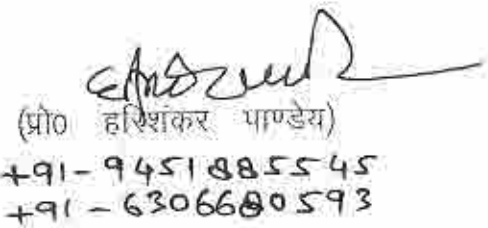 (प्रो० हरिशंकर पाण्डेय)
+91-9451885545
+91-6306680593